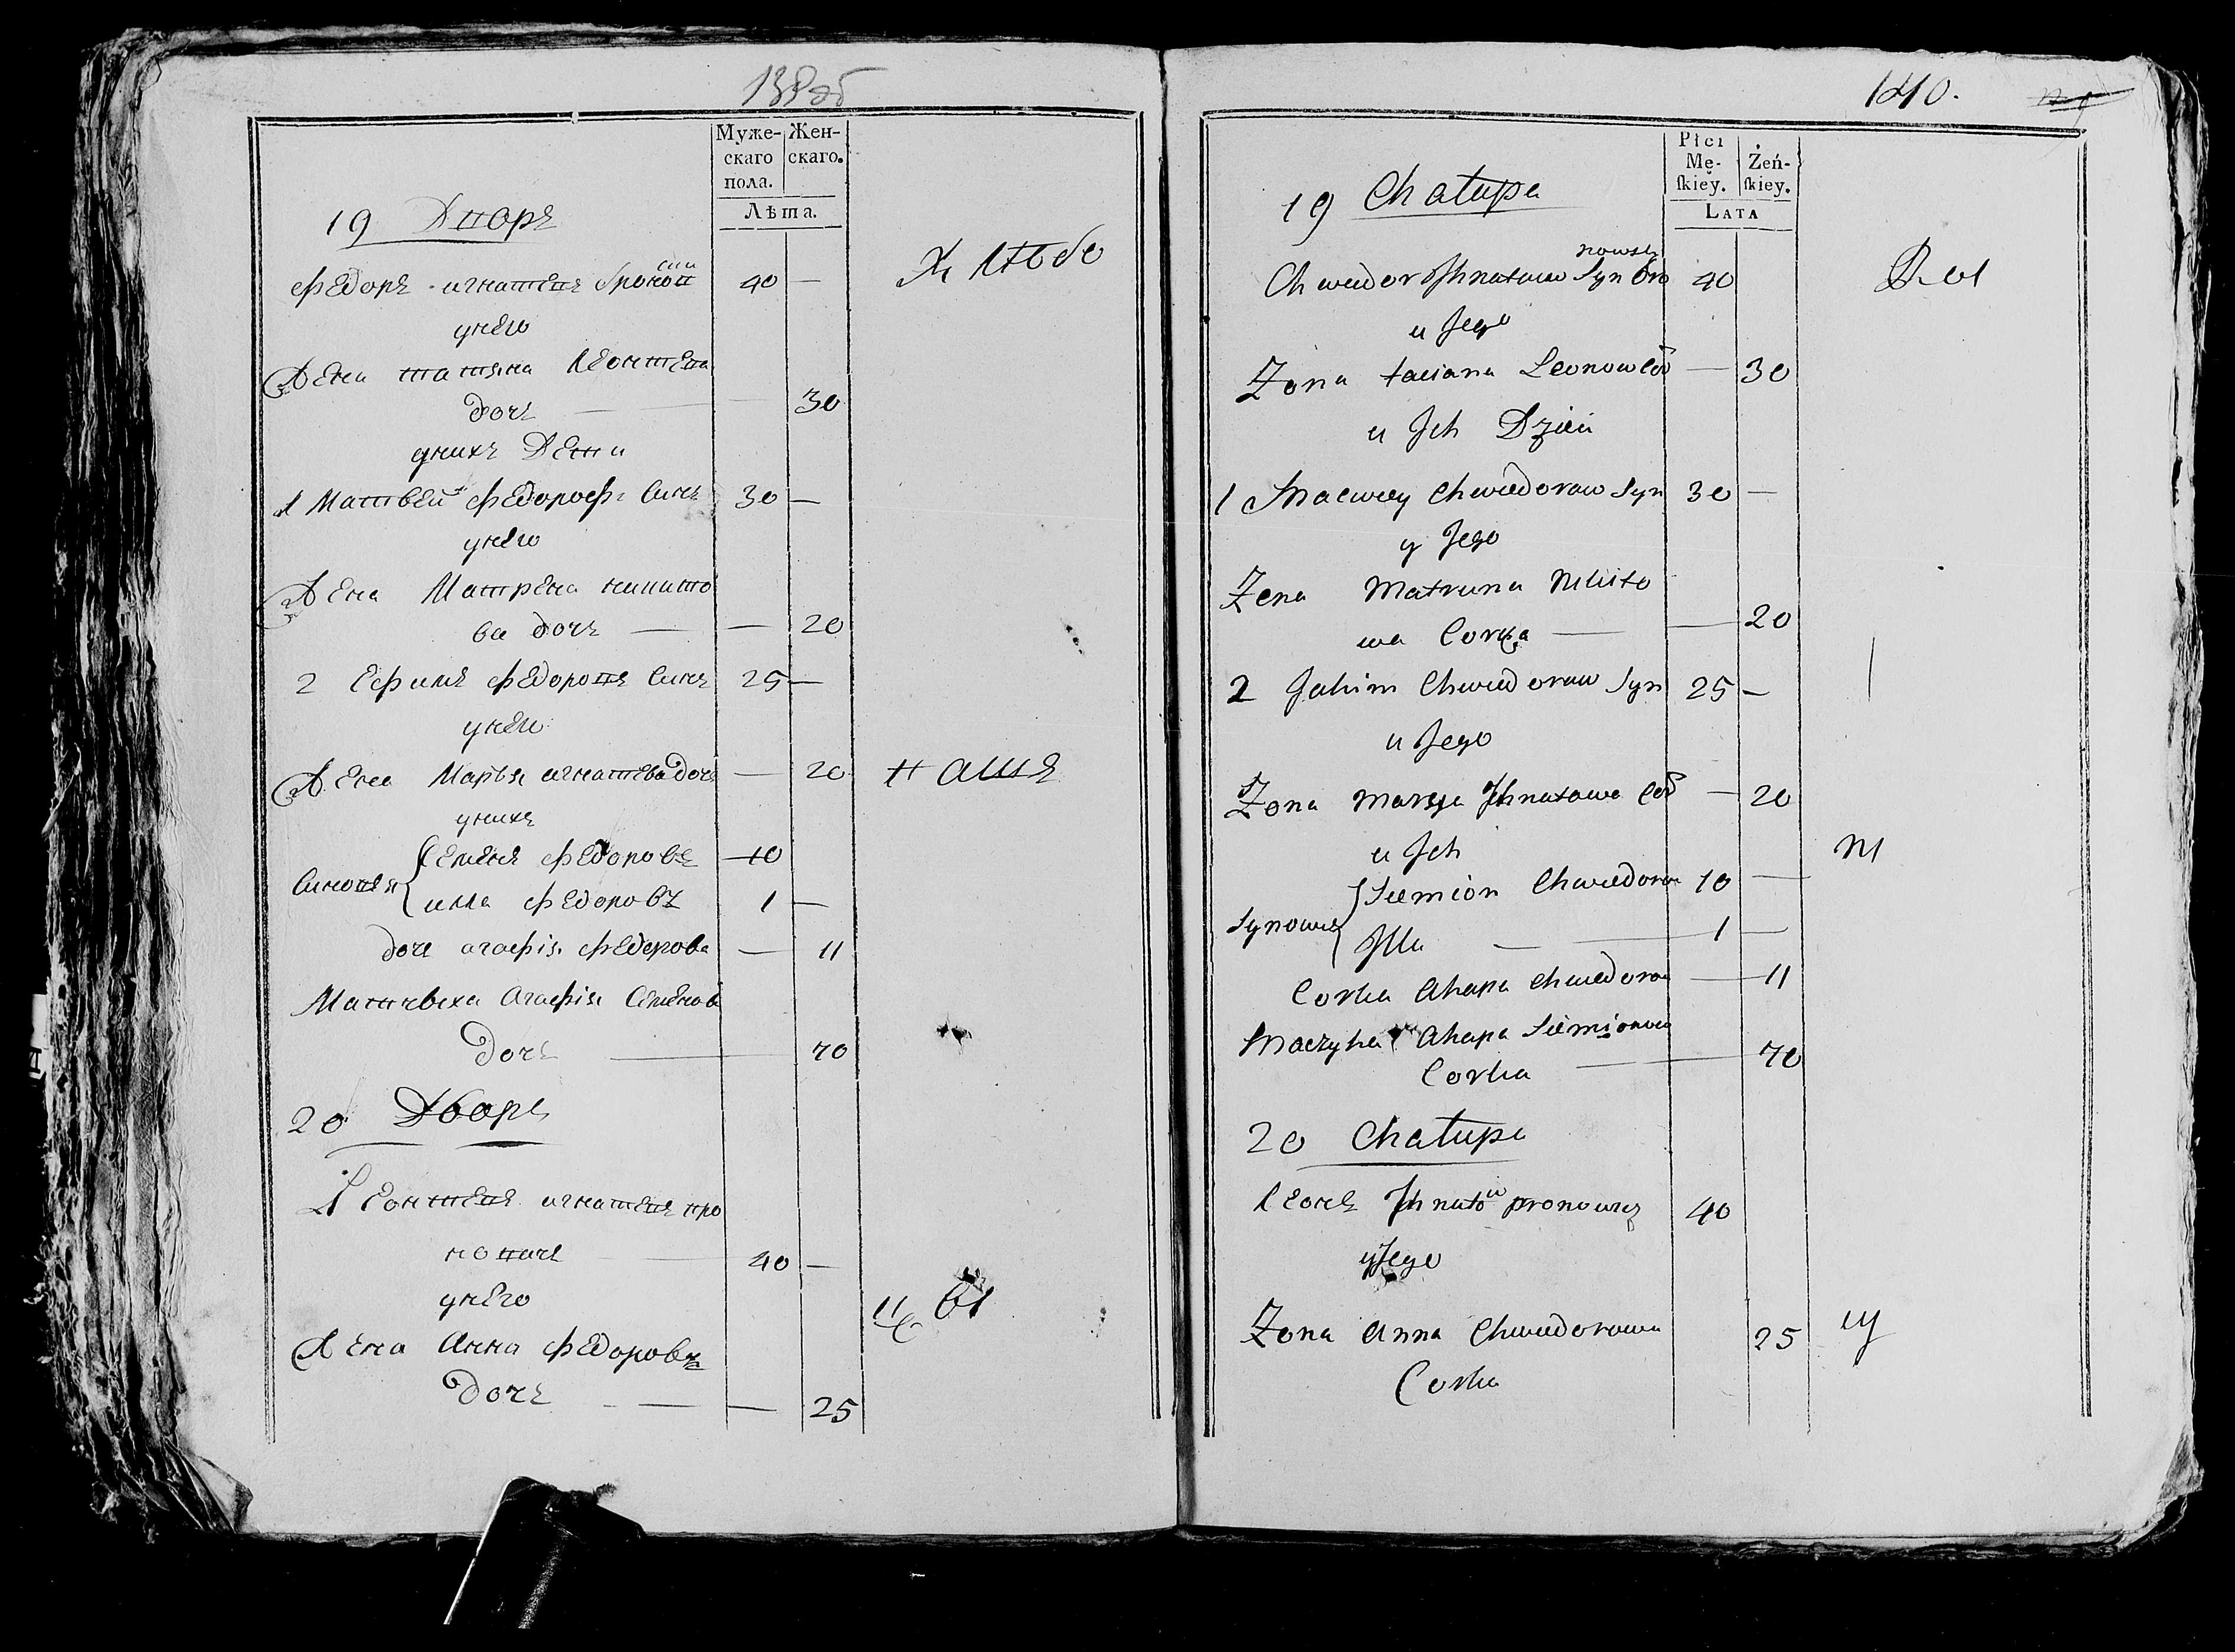 139об
Муже-
скаго
пола.
Жен-
скаго.
Лѣта.
19 Дворъ
Хлѣбо
Федоръ игнатевъ 40 —
унего
Жена татяна Леонтева
дочъ — 30
унихъ Дети
1 Матвей федорофъ Синъ 30 —
унего
Жена Матрена никито
ва дочъ — — 20
2 Ефимъ федоровъ Синъ 25 —
унего
Жена Маръя игнатева дочъ — 20
пашя
унихъ
Синовя { Семенъ федоровъ 10
илла федоровъ 1 —
дочъ агафія федорова — 11
Агафія Семенов
дочъ — 70
20 Дворъ
Леонтевъ игнатевъ про
новичъ 40 —
унего
Жена Анна федоровъ
дочъ — — 25
140.
Płci
Mę-
ſkiey.
Żeń-
ſkiey.
Lata
19 Chatupa
Rol
nowsky
Chwedor Jhnatow Syn Bro 40
u Jego
Zona taciana Leonow — 30
u Jch Dzieci
1 Macwiey Chwiedorow Syn 30 —
y Jego
Zena Matruna Mikito
wa Corka — — 20
2 Jakim Chwiedorow Syn 25 —
u Jego
Zona Marya Jhnatowa Co — 20
u Jch
m
Synowie { Siemion Chwiedorow 10 —
Jlla — 1 —
Corka Ahapa Chwiedorow — 11
Maczyha Ahapa Siemionowa
Corka — 70
20 Chatupa
Leonъ Jhnatow pronowicz 40
y Jego
Zona Anna Chwiedorowa 25
Corka